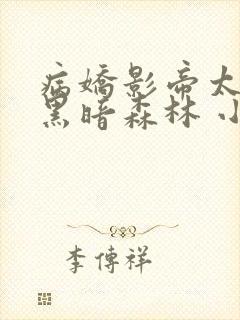 病嬌影帝太
黑暗森林 小
李傳祥